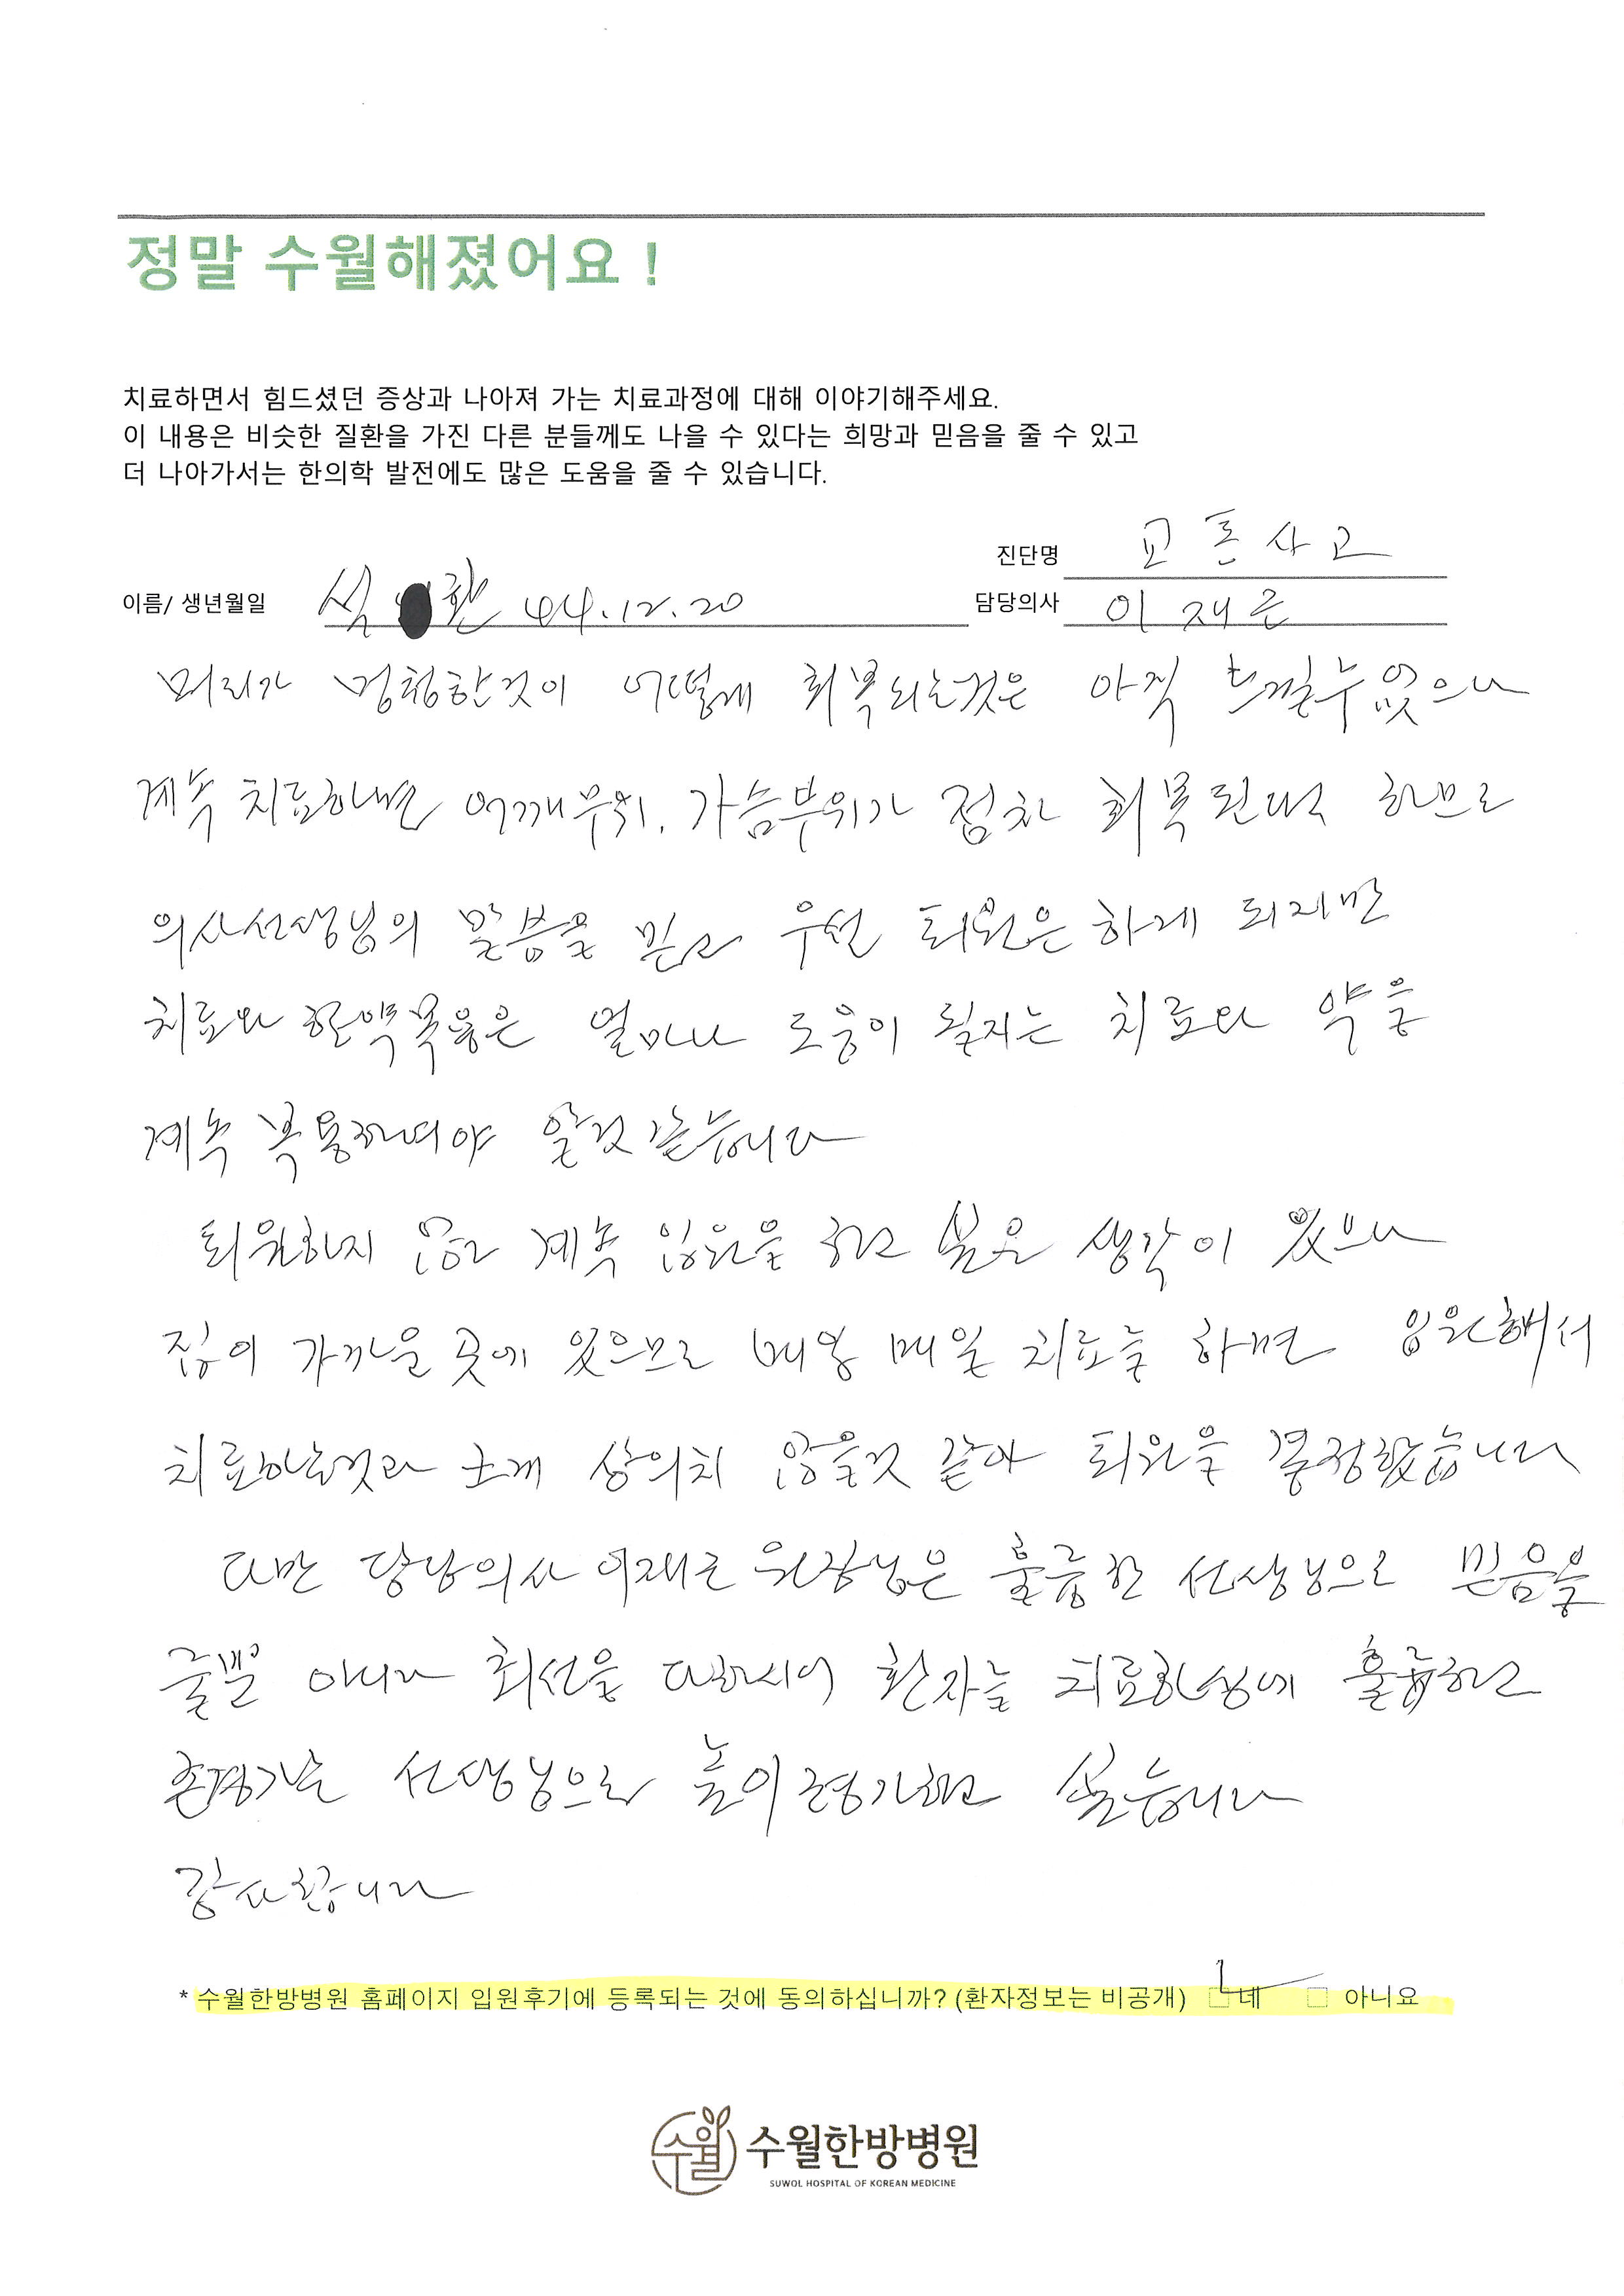 정말 수월해졌어요 !
치료하면서 힘드셨던 증상과 나아져 가는 치료과정에 대해 이야기해주세요.
이 내용은 비슷한 질환을 가진 다른 분들께도 나을 수 있다는 희망과 믿음을 줄 수 있고
더 나아가서는 한의학 발전에도 많은 도움을 줄 수 있습니다.
진단명 교통사고
이름/ 생년월일 석 환 44.12.20 담당의사 이재근
머리가 멍청한것이 어떻게 회복되는것은 아직 느낄수 없으나
계속 치료하면 어깨부위, 가슴부위가 점차 회복된다 하므로
의사선생님의 말씀을 믿고 우선 퇴원은 하게 되지만
치료와 한약복용은 얼마나 도움이 될지는 치료와 약을
계속 복용하여야 알것같습니다
퇴원하지 않고 계속 입원을 하고 싶은 생각이 있으나
집이 가까운 곳에 있으므로 매일 치료를 하면 입원해서
치료하는것과 크게 상의치 않을것 같아 퇴원을 결정했습니다
다만 담당의사 이재근 원장님은 훌륭한 선생님으로 믿음을
줄뿐 아니라 최선을 다하시어 환자를 치료하심에 훌륭하고
존경가는 선생님으로 높이 평가하고 싶습니다
감사합니다
* 수월한방병원 홈페이지 입원후기에 등록되는 것에 동의하십니까? (환자정보는 비공개) 네 아니요
수월 수월한방병원
SUWOL HOSPITAL OF KOREAN MEDICINE